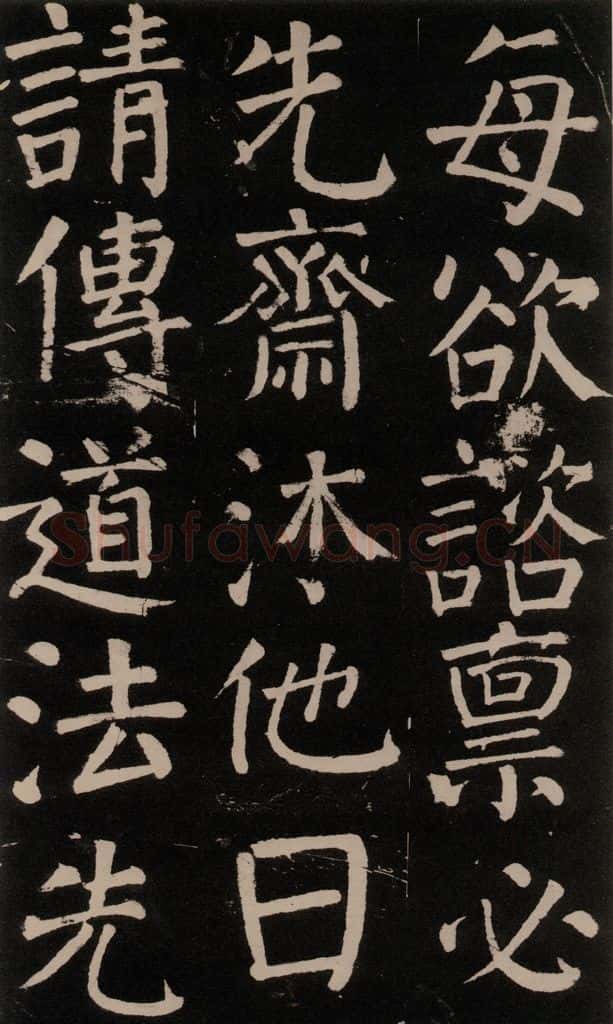 每欲諮禀必
先齋沐他日
請傳道法先
Shufawang.CN